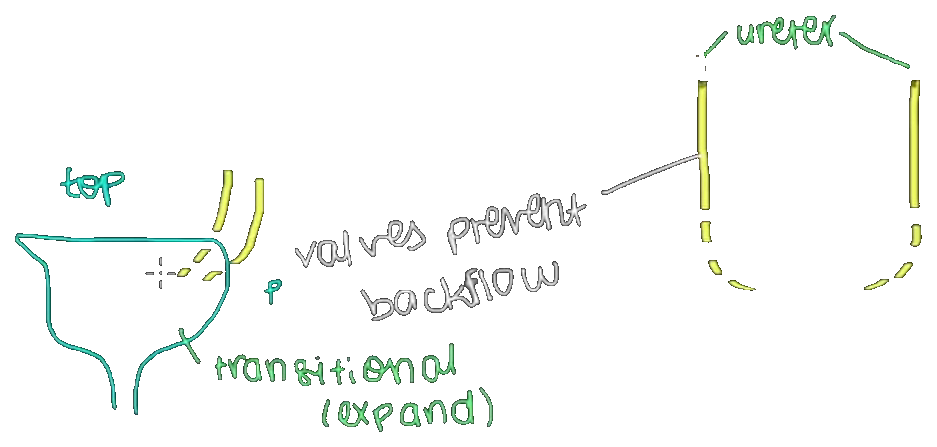 ureter
top
valves prevent
backflow
p
transitional
(expand)